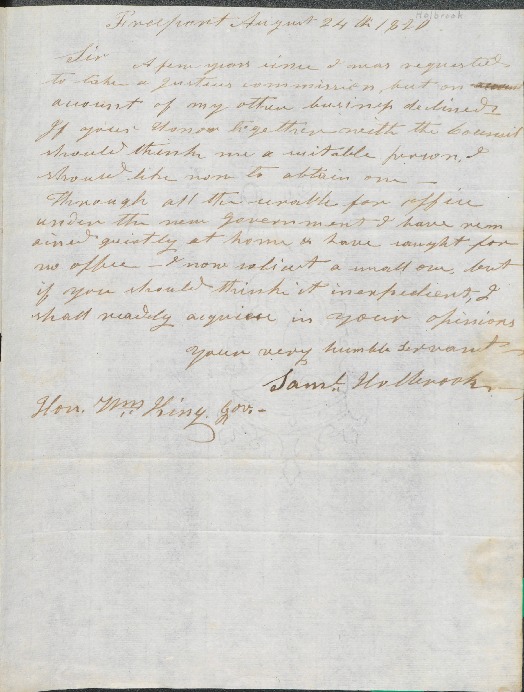 Holbrook
Freeport August 24th 1820
Sir A few years since I was requested
to take a Justices commission, but on
account of my other business declined
If your Honor together with the Council
should think me a suitable person, I
should like now to obtain one —
Through all the scrable for office
under the new government I have rem
ained quietly at home & have sought for
no office — I now solicit a small one, but
if you should think it inexpedient, I
shall readily acquiesce in your opinions
your very humble Servant —
Saml. Holbrook
Hon. Wm. King. Gov. —